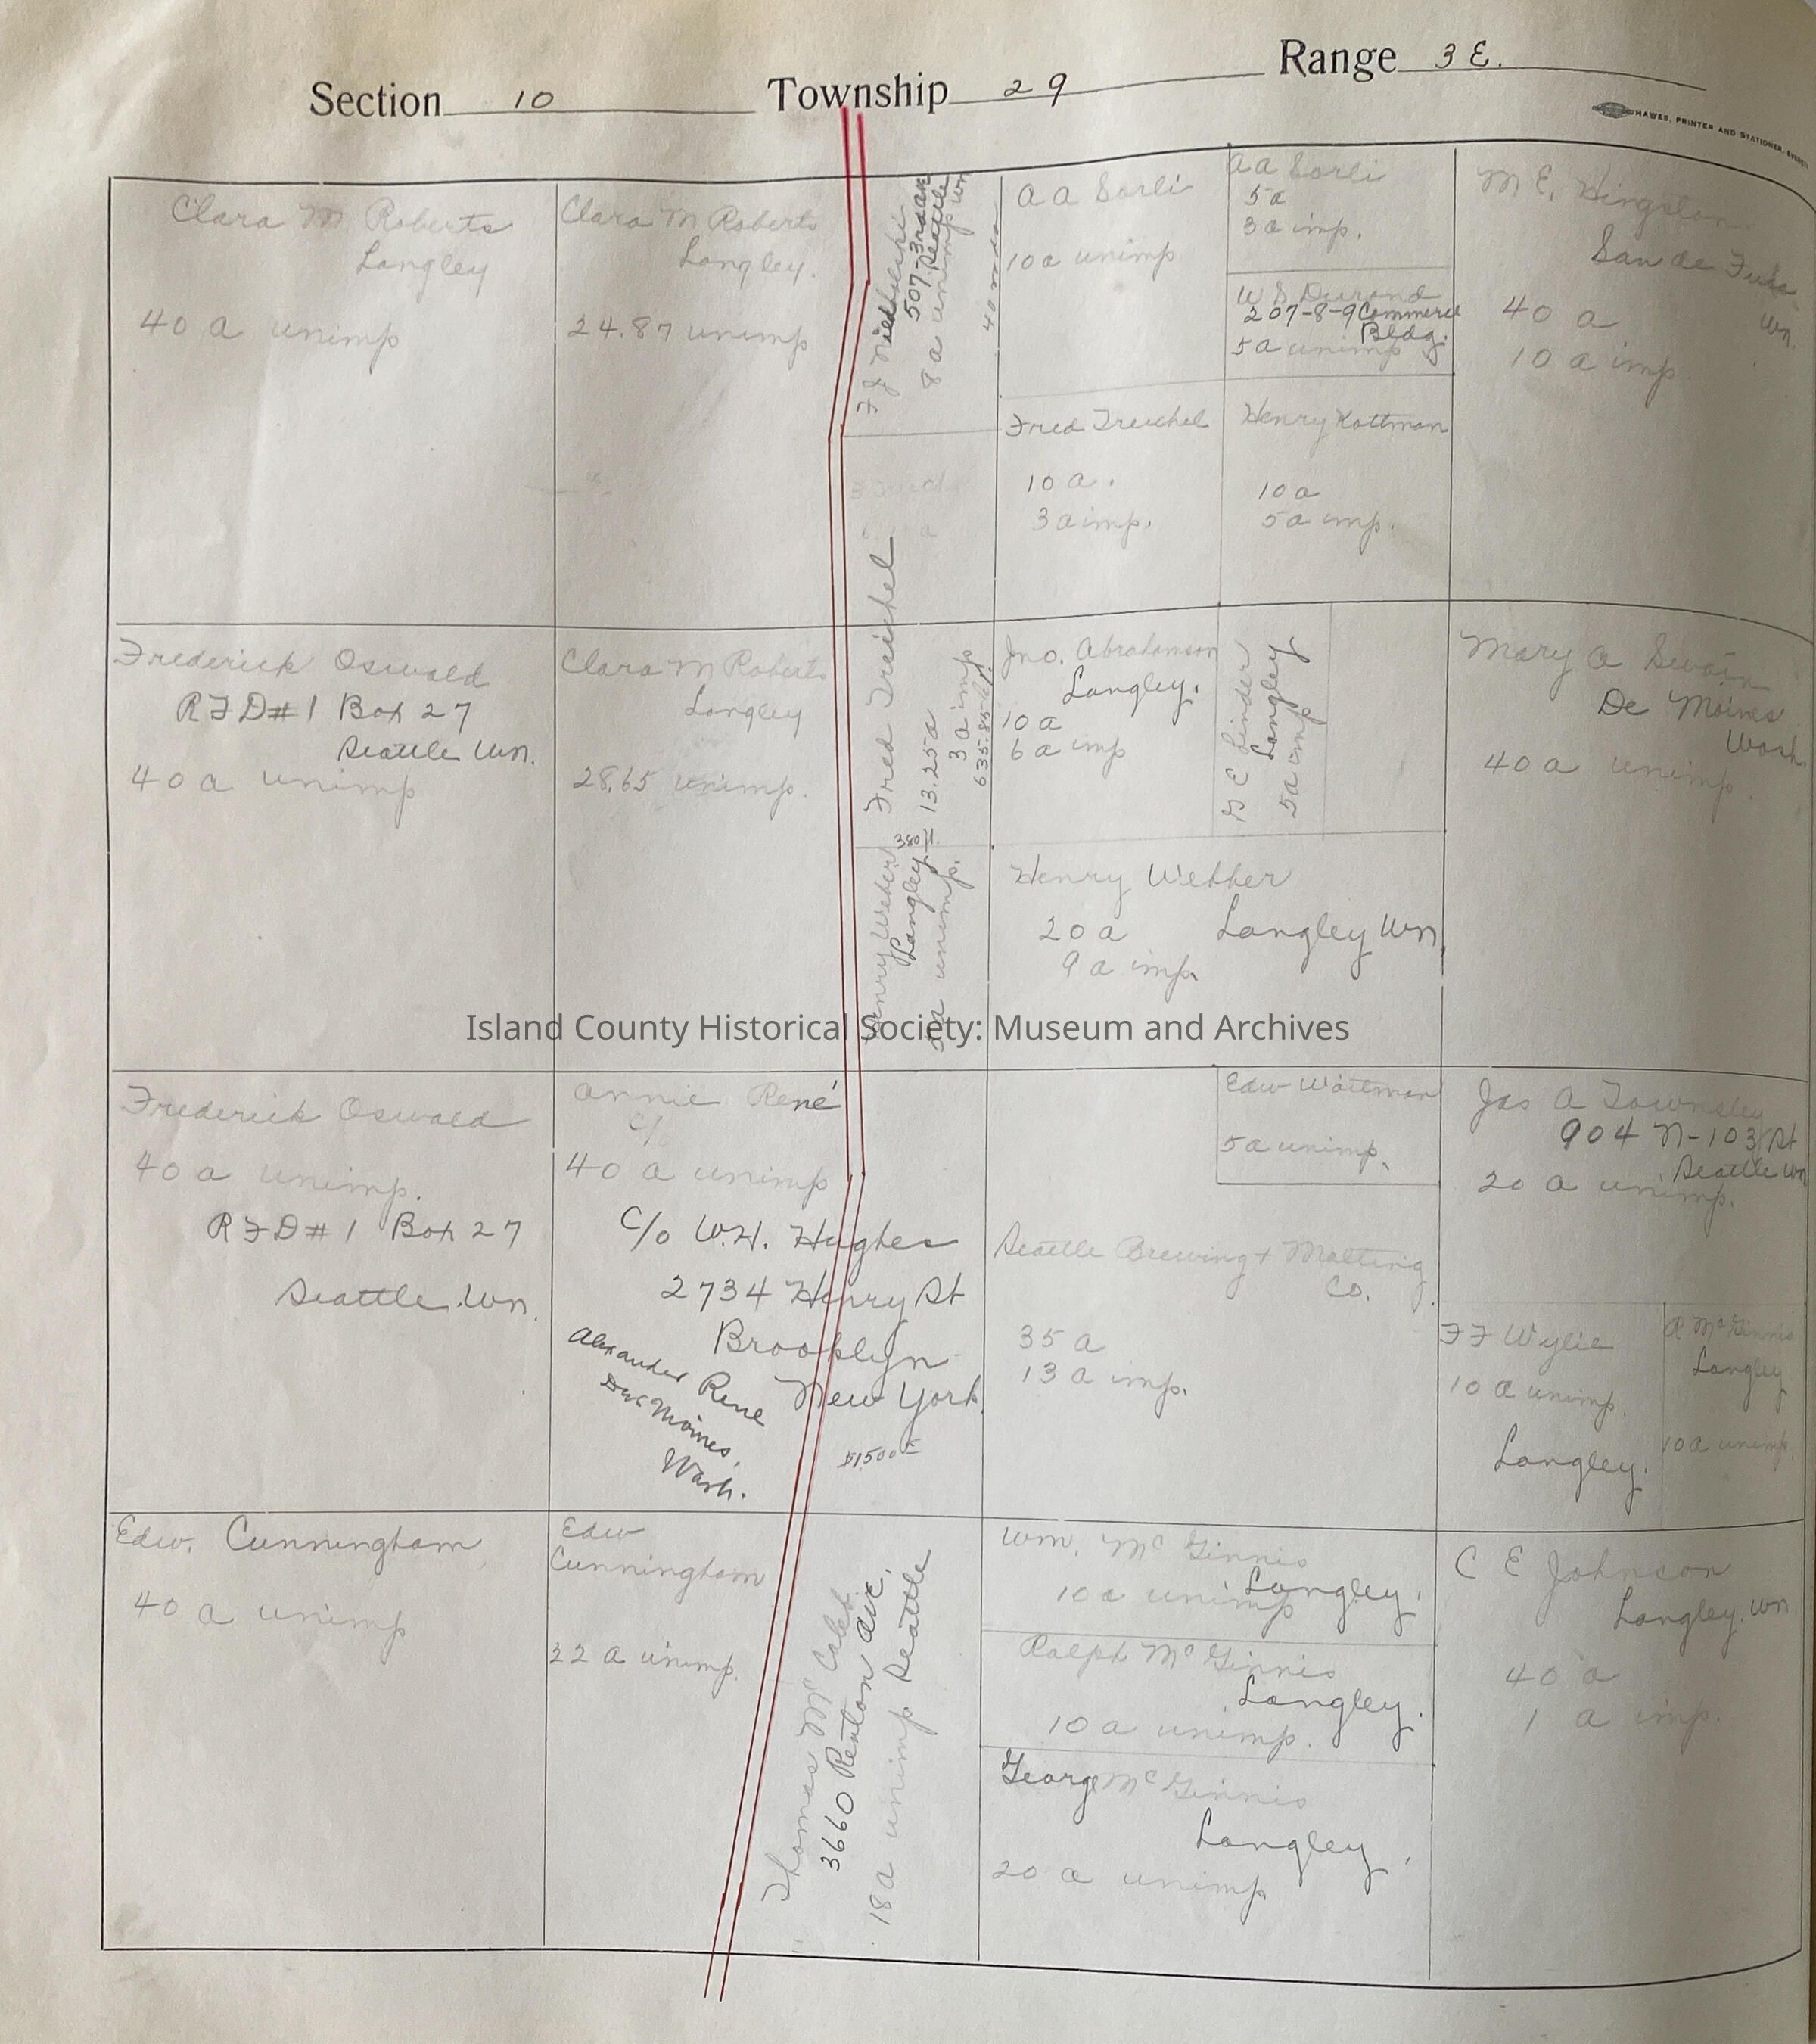 Section 10 Township 29 Range 3 E.
HAWES, PRINTER AND STATIONER, EVERETT
Clara M Roberts
Langley
40 a unimp
Clara M Roberts
Langley.
24.87 unimp
F J
507-3rd ave
Seattle Wn
8 a unimp
A A Sorli
10 a unimp
A A Sorli
5 a
3 a imp.
W S Durand
207-8-9 Commerce
Bldg.
5 a unimp
M E. Kingston
San de Fuca
Wn.
40 a
10 a imp
Fred Treichel
10 a.
3 a imp.
Henry Kottman
10 a
5 a imp.
Frederick Oswald
RFD#1 Box 27
Seattle Wn.
40 a unimp
Clara M Roberts
Langley
28.65 unimp.
Fred Treichel
13.25 a
3 a imp
635.85
Jno. Abrahamson
Langley.
10 a
6 a imp
G E Linder
Langley
5 a imp
Mary A Swain
De Moines
Wash.
40 a unimp.
Henry Weber
Langley.
380
unimp.
Henry Webber
20 a Langley Wn.
9 a imp.
Island County Historical Society: Museum and Archives
Frederick Oswald
40 a unimp.
RFD#1 Box 27
Seattle Wn.
Annie René
C/
40 a unimp
C/o W.H. Hughes
2734 Henry St
Brooklyn
New York.
Alexander Rene
Des Moines,
Wash.
$1500
Edw Waltman
5 a unimp.
Seattle Brewing + Malting
Co.
35 a
13 a imp.
Jas A Townsley
904 N-103 St
Seattle Wn
20 a unimp.
F F Wylie
10 a unimp.
Langley.
R McGinnis
Langley
10 a unimp.
Edw. Cunningham
40 a unimp
Edw
Cunningham
22 a unimp.
Thomas McCabe
3660 Renton Ave.
Seattle
18 a unimp
Wm. McGinnis
Langley.
10 a unimp
Ralph McGinnis
Langley.
10 a unimp.
George McGinnis
Langley.
20 a unimp
C E Johnson
Langley. Wn.
40 a
1 a imp.